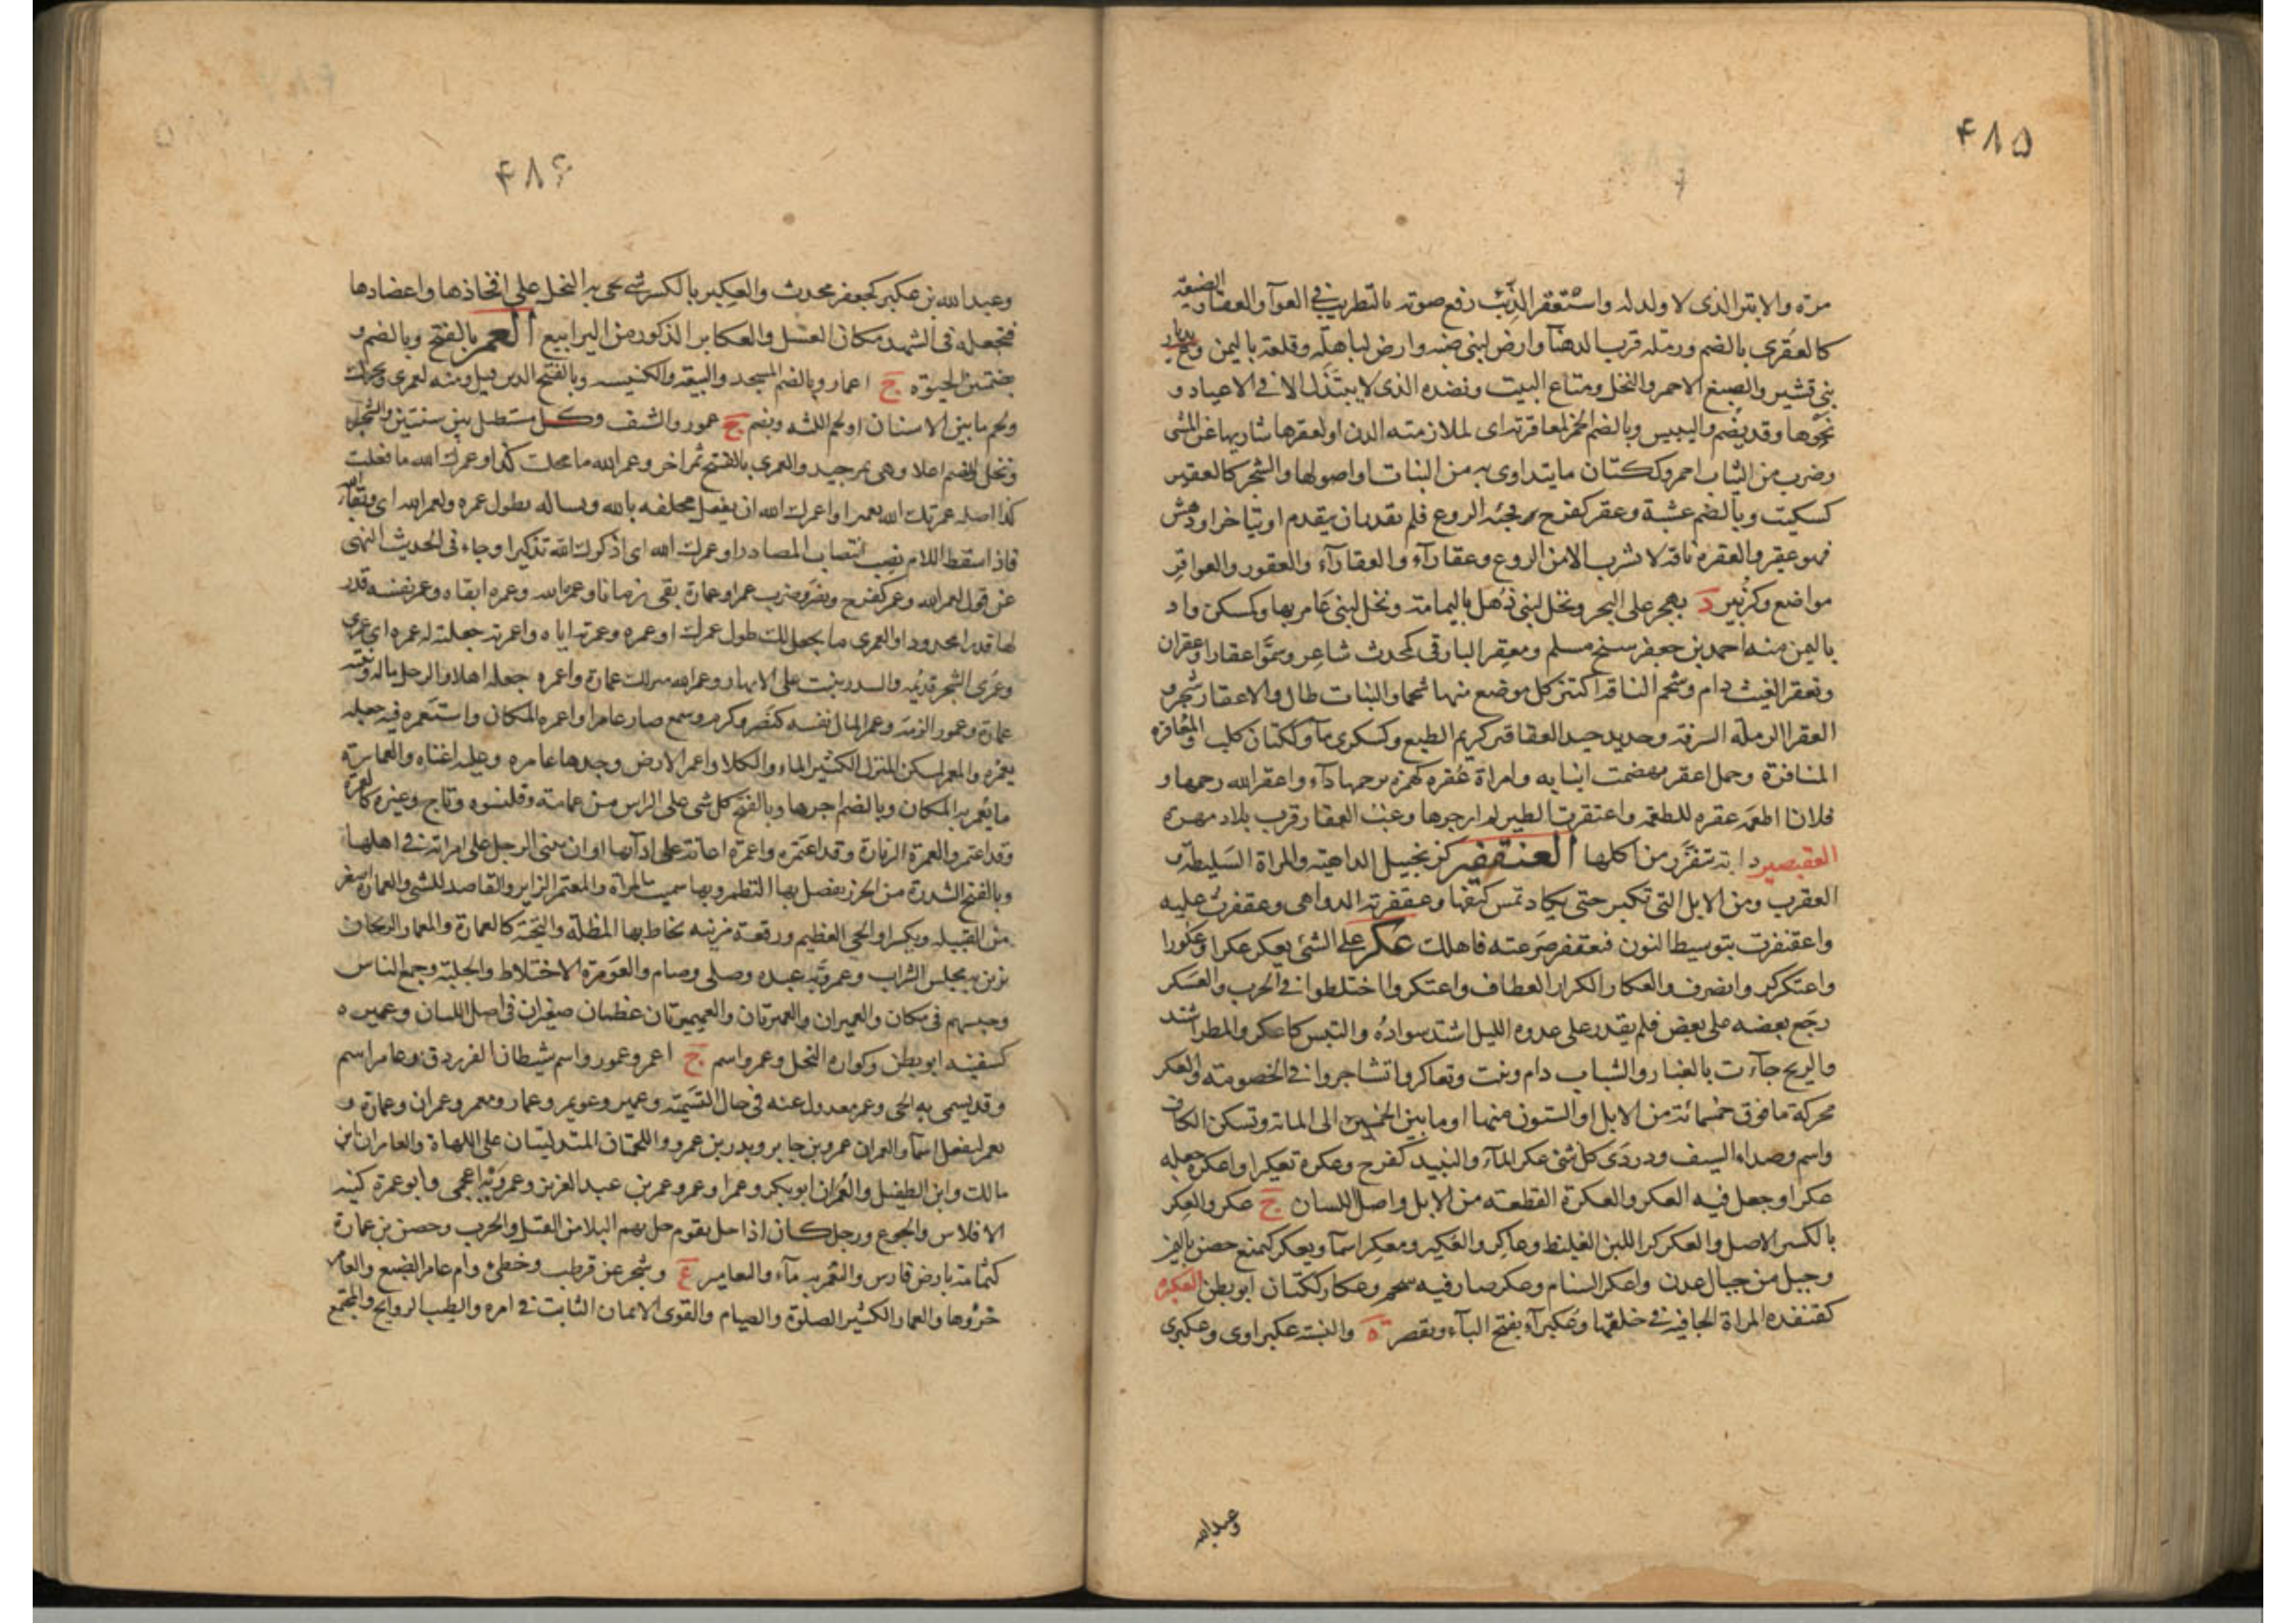 ۴۸۵
مرّه والابتر الذى لا ولد له واستعقر الذئب رفع صوته بالتطريب فى العوآ والعقار الضيعه
كالعقرى بالضم ورمله قرب الدهنآ وارض لبنى ضبه وارض لباهلة وقلعة باليمن وع بديار
بنى قشير والصبغ الاحمر والنخل ومتاع البيت ونضده الذى لا يبتذل الا فى الاعياد و
نحوها وقد يضم واليبيس وبالضم الخمر لمعاقرتها اى لملازمته الدن او لعقرها شاربها عن المشى
وضرب من الثياب احمر وككتان ما يتداوى به من النبات او اصولها والشجر كالعقير
كسكيت وبالضم عشبة وعقر كفرح فجئه الروع فلم يقدر ان يتقدم او يتاخر او دهش
فهو عقير والعقره ناقة لا تشرب الا من الروع وعقارآء والعقارآء والعقور والعواقر
مواضع وكزبير د بهجر على البحر ونخل لبنى ذهل باليمامة ونخل لبنى عامر بها وكمسكن واد
باليمن منه احمد بن جعفر شيخ مسلم ومعقر البارقى كمحدث شاعر وسمّوا عقارا وعقران
وتعقر الغيث دام وشحم الناقه اكتنز كل موضع منها شحما والنبات طال والاعقار شجر و
العقرا الرملة المشرفة وحديد جيد العقاقر كريم الطبع وكسكرى مآ وككتان كلب والمعاقره
المنافرة وجمل اعقر تهضمت انيابه وامراة عقره كهمزه برحمها دآء واعقر الله رحمها و
فلانا اطعمه عقره للطعمه واعتقرت الطير لم ازجرها وعبث العقار قرب بلاد مهره
العقيصير دابة تتقزز من اكلها العنقفير كزنجبيل الداهية والمراة السليطة و
العقرب ومن الابل التى تكبر حتى يكاد تمس كتفها وعقفرته الدواهى وعقفرت عليه
واعقنفرت بتوسيط النون فتعقفر صرعته فاهلك عكر على الشئ يعكر عكرا وعكورا
واعتكر كر وانصرف والعكار الكرار العطاف واعتكروا اختلطوا فى الحرب والعسكر
رجع بعضه على بعض فلم يقدر على عدوه الليل اشتد سواده والتبس كاعكر والمطر اشتد
والريح جآءت بالغبار والشباب دام وثبت وتعاكروا تشاجروا فى الخصومة والعكر
محركة ما فوق خمسمائة من الابل او الستون منها او ما بين الخمسين الى المائة وتسكن الكاف
واسم وصداء السيف ودردى كل شئ عكر المآء والنبيذ كفرح وعكره تعكيرا واعكره جعله
عكرا وجعل فيه العكر والعكرة القطعة من الابل واصل اللسان ج عكر والعكر
بالكسر الاصل والعكركر اللبن الغليظ وعاكر والعكير ومعكر اسمآ ويعكر كيمنع حصن باليمن
وجبل من جبال عدن واعكر السنام وعكر صار فيه شحم وعكار ككتان ابو بطن العكبره
كقنفده المراة الجافية فى خلقها وعكبرآء بفتح البآء ويقصر ة والنسبة عكبراوى وعكبرى
وعبد الله
۴۸۶
وعبد الله بن عكبر كجعفر محدث والعكبر بالكسر شئ تجئ به النحل على افخاذها واعضادها
فتجعله فى الشهد مكان العسل والعكابر الذكور من اليرابيع العمر بالفتح وبالضم و
بضمتين الحيوة ج اعمار وبالضم المسجد والبيعة والكنيسه وبالفتح الدين قيل ومنه لعمرى ويحرك
ولحم ما بين الاسنان او لحم اللثه ويضم ج عمور والشنف وكل مستطيل بين سنتين والشجر
ونخل والضم اعلا وهى تمر جيد والعمرى بالفتح تمر اخر وعمر الله ما فعلت كذا وعمرك الله ما فعلت
كذا اصله عمرتك الله تعميرا واعمرك الله ان يفعل تحلفه بالله وتساله بطول عمره ولعمر الله اى وبقآء الله
فاذا سقط اللام نصب انتصاب المصادر او عمرك الله اى اذكرك الله تذكيرا وجاء فى الحديث النهى
عن قول لعمر الله وعمر كفرح ونصر وضرب عمرا وعمارة بقى زمانا وعمره الله وعمره ابقاه وعمر نفسه قدر
لها قدرا محدودا والعمرى ما يجعل لك طول عمرك او عمره وعمرته اياه واعمرته جعلته له عمره اى عمرى
وعمرى الشجر قديمه والسدر ينبت على الانهار وعمر الله منزلك عمارة واعمره جعله اهلا والرجل ماله وبيته
عمارة وعمور الزمه وعمر المال نفسه كنصر وكرم وسمع صار عامرا واعمره المكان واستعمره فيه جعله
يعمره والمعمر كمسكن المنزل الكثير الماء والكلا واعمر الارض وجدها عامره وعليه اغناه والعمارة
ما يعمر به المكان وبالضم اجرها وبالفتح كل شئ على الراس من عمامة وقلنسوه وتاج وغيره كالعمرة
وقد اعتمر والعمرة الزيارة وقد اعتمره واعمره اعانه على ادآئها وان يبنى الرجل على امراته فى اهلها
وبالفتح الشذرة من الخرز يفصل بها النظم وبها سميت المراة والمعتمر الزاير والقاصد للشئ والعمارة اصغر
من القبيله ويكسر او الحى العظيم ورقعة مزينه تخاط بها المظلة والتحية كالعمارة والعمار الريحان
يزين به مجلس الشراب وعمر ربّه عبده وصلى وصام والعومرة الاختلاط والجلبة وجمع الناس
وحبسهم فى مكان والعميران والعمرتان والعميرتان عظمان صغيران فى اصل اللسان وعميره
كسفينه ابو بطن وكواره النحل وعمرو اسم ج اعمر وعمور واسم شيطان الفرزدق وعامر اسم
وقد يسمى به الحى وعمر معدول عنه فى حال التسمية وعمير وعويمر وعمار ومعمر وعمران وعمارة و
يعمر ليفعل اسمآ والعمران عمرو بن جابر وبدر بن عمرو واللحمتان المتدليتان على اللهاة والعامران ابن
مالك وابن الطفيل والعمران ابوبكر وعمر او عمر وعمر بن عبد العزيز وعمرويه اعجمى وابو عمرة كنية
الافلاس والجوع ورجل كان اذا حل بقوم حل بهم البلا من القتل والحرب وحصن بن عمارة
كثمامة بارض فارس والعمريه مآء واليعامير ع وشجر عن قطرب وخطئ وام عامر الضبع والعامر
جروها والعمار الكثير الصلوة والصيام والقوى الايمان الثابت فى امره والطيب الروايح والمجتمع